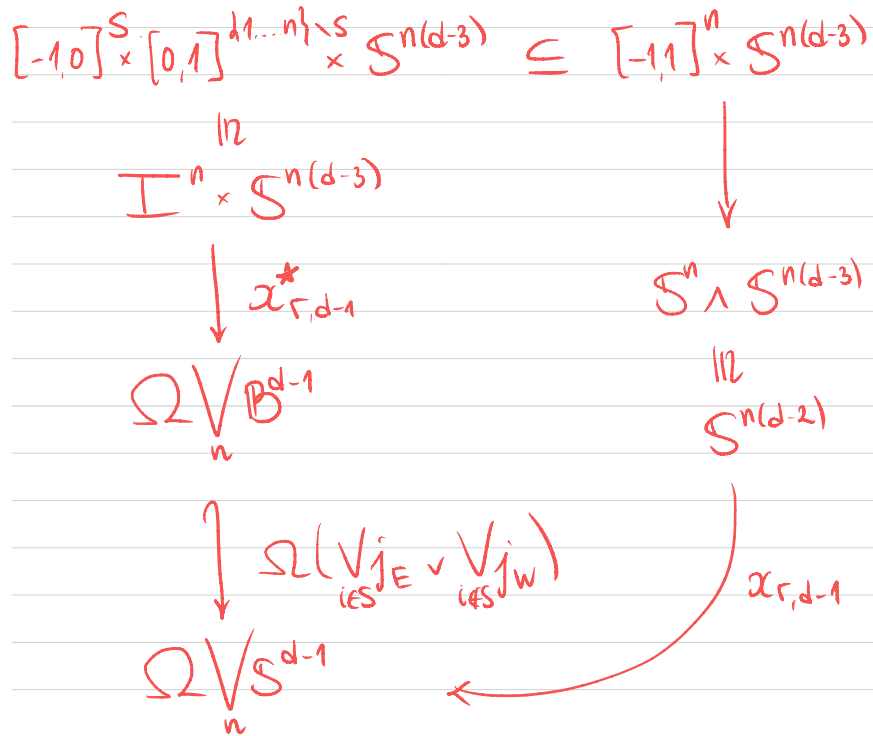 [-1,0]^S × [0,1]^{{1...n}∖S} × S^{n(d-3)} ⊆ [-1,1]^n × S^{n(d-3)}
≅
I^n × S^{n(d-3)}
x^★_{Γ,d-1}
S^n ∧ S^{n(d-3)}
≅
Ω⋁_n B^{d-1}
S^{n(d-2)}
Ω(⋁_{i∈S} j_E ∨ ⋁_{i∉S} j_W)
x_{Γ,d-1}
Ω⋁_n S^{d-1}